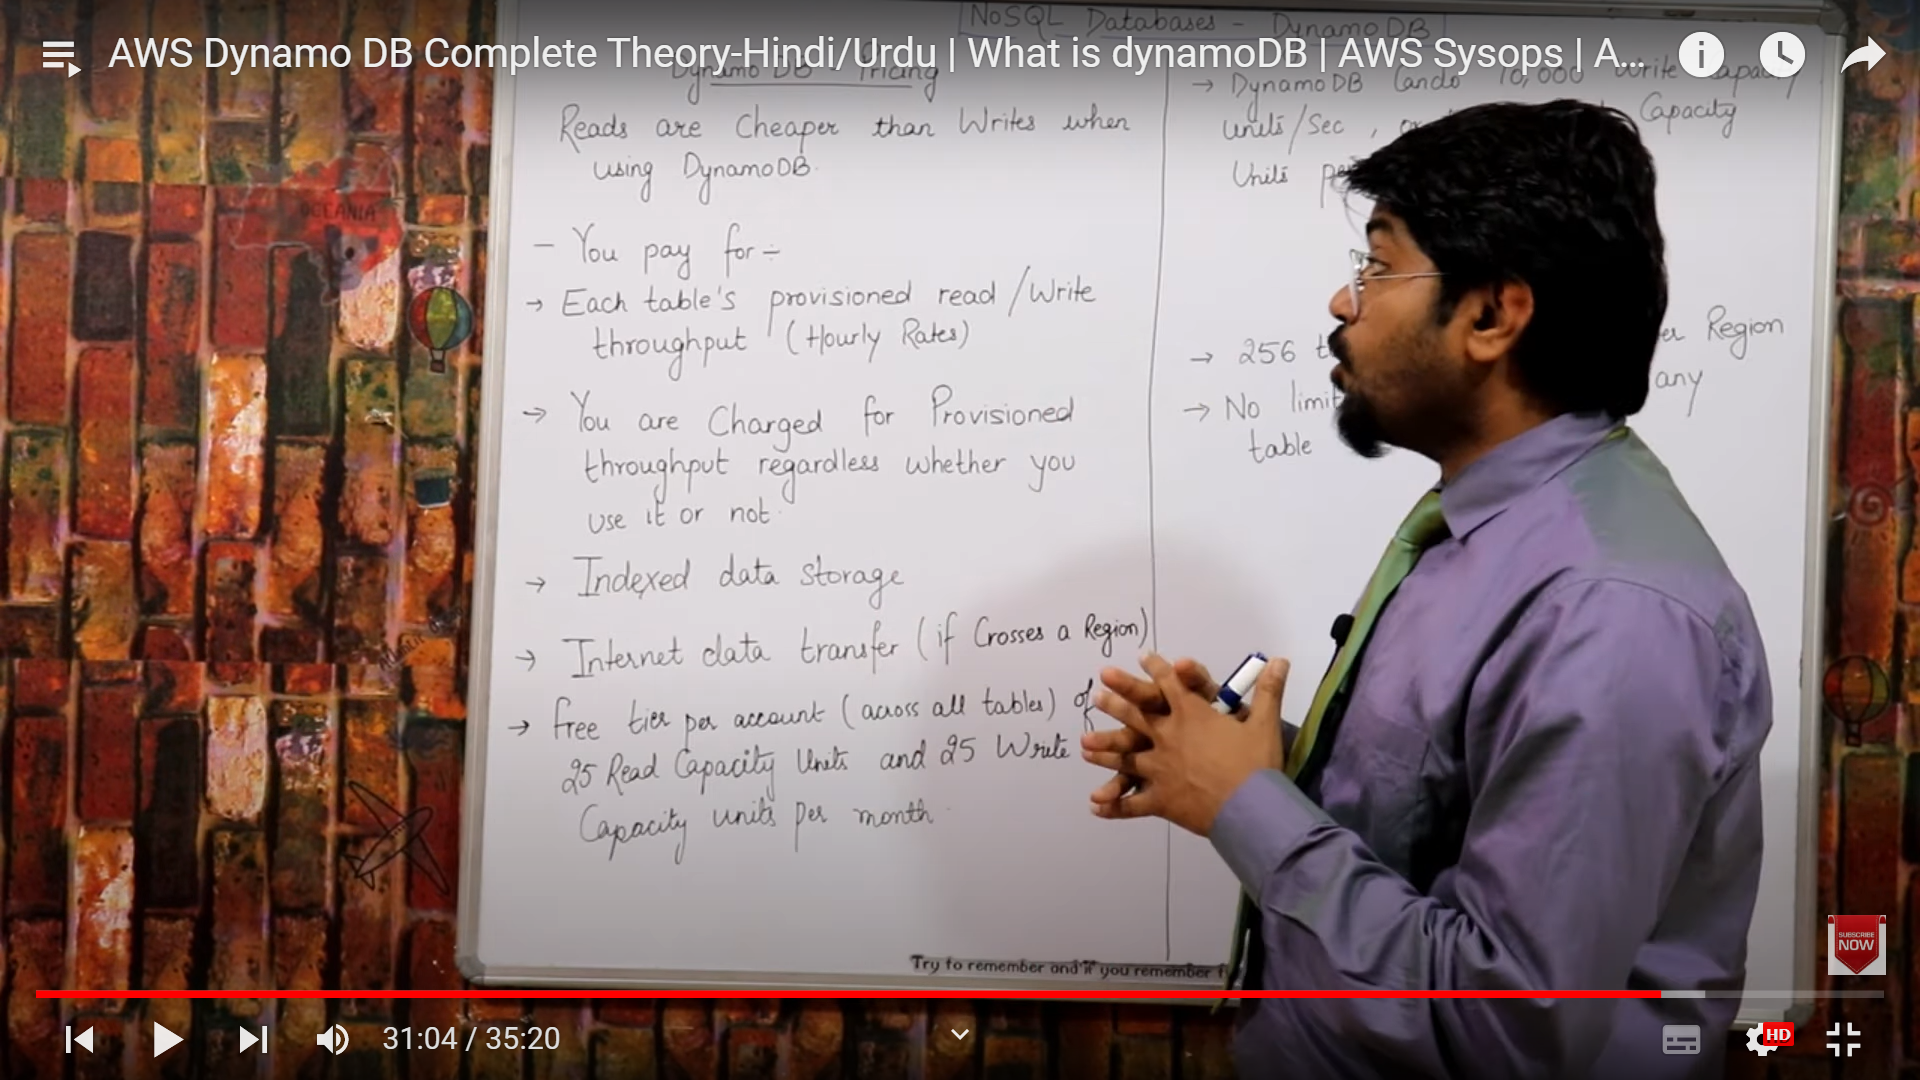 AWS Dynamo DB Complete Theory-Hindi/Urdu | What is dynamoDB | AWS Sysops | A...
NoSQL Databases - DynamoDB
DynamoDB Pricing
Reads are Cheaper than Writes when
using DynamoDB.
- You pay for:-
→ Each table's provisioned read/Write
throughput (Hourly Rates)
→ You are Charged for Provisioned
throughput regardless whether you
use it or not.
→ Indexed data storage
→ Internet data transfer (if Crosses a Region)
→ free tier per account (across all tables) of
25 Read Capacity Units and 25 Write
Capacity units per month.
→ DynamoDB Cando 10,000 Write Capacity
units/Sec, Capacity
Units per
→ 256 Region
→ No limit any
table
OCEANIA
Try to remember and if you remember
SUBSCRIBE
NOW
31:04 / 35:20
HD